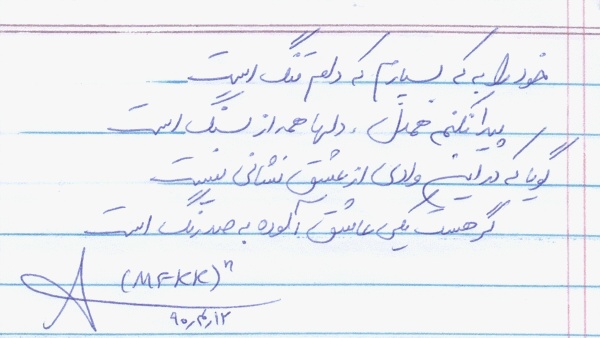 خود را به که بسپارم که دلم تنگ است
پیدا نکنم همدل، دلها همه از سنگ است
گویا که در این وادی از عشق نشانی نیست
گر هست یکی عاشق آلوده به صد رنگ است
(MFKK)ⁿ
۹۰٫۴٫۱۲